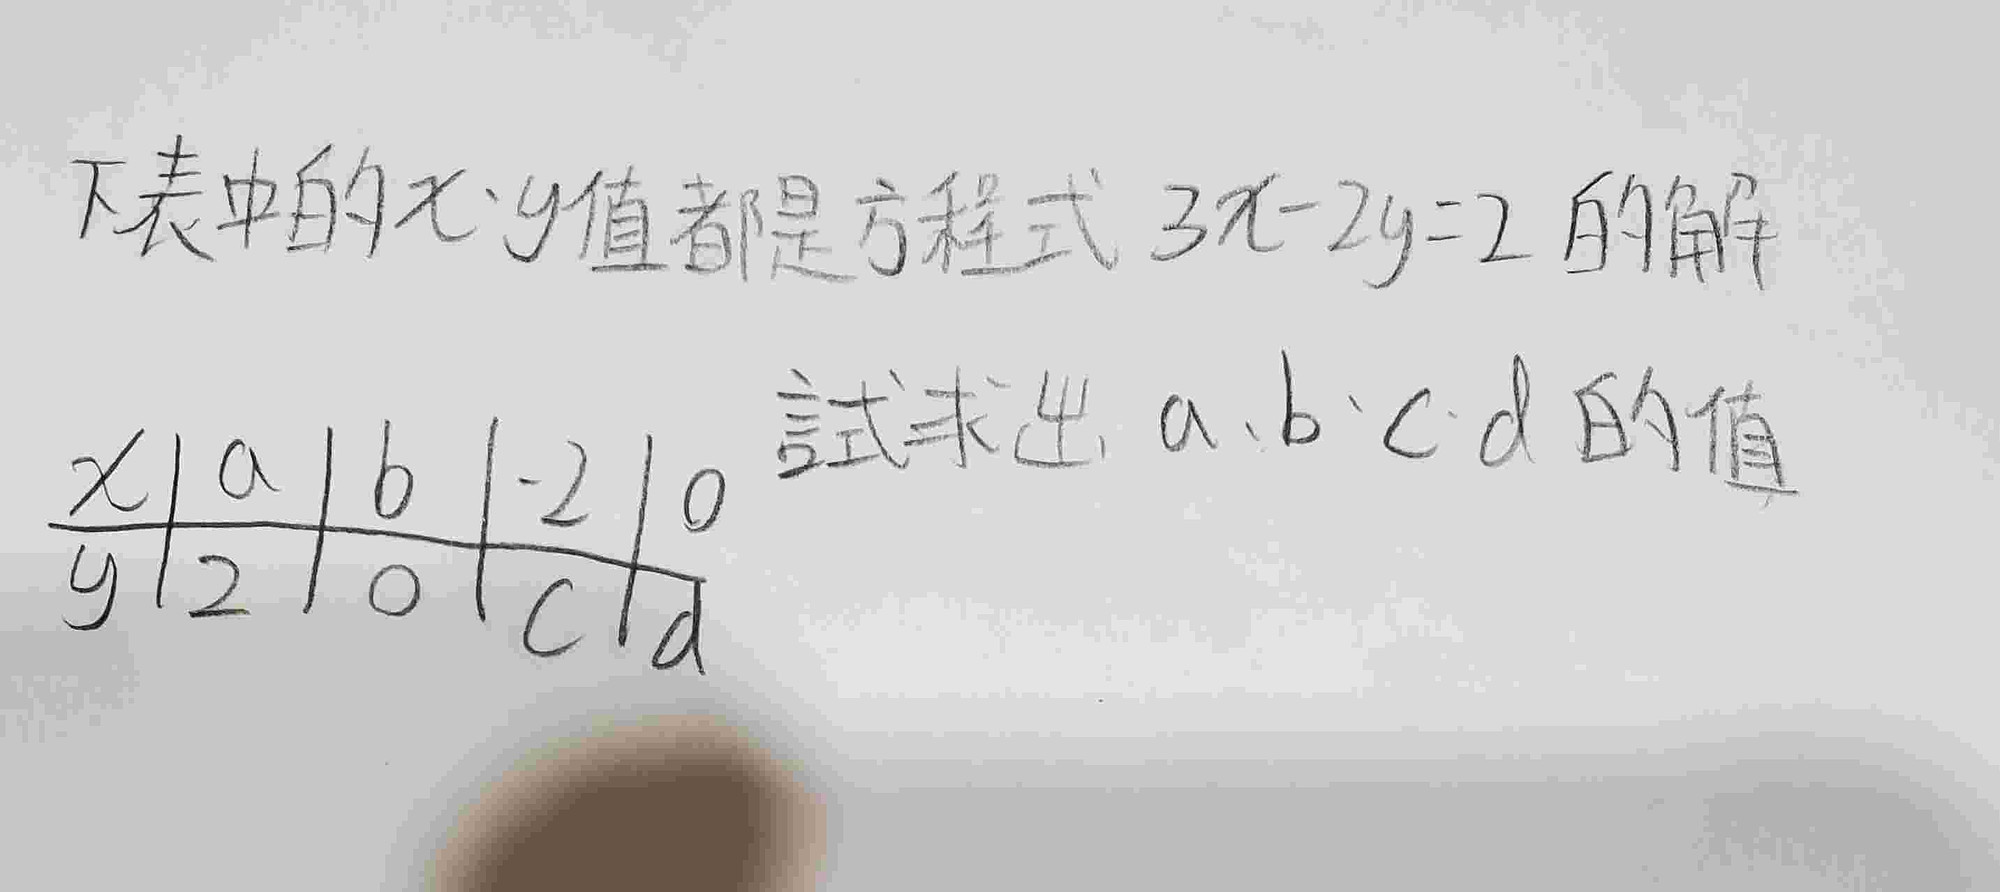 下表中的x、y值都是方程式 3x-2y=2 的解
試求出 a、b、c、d 的值
x | a | b | -2 | 0
y | 2 | 0 | c | d